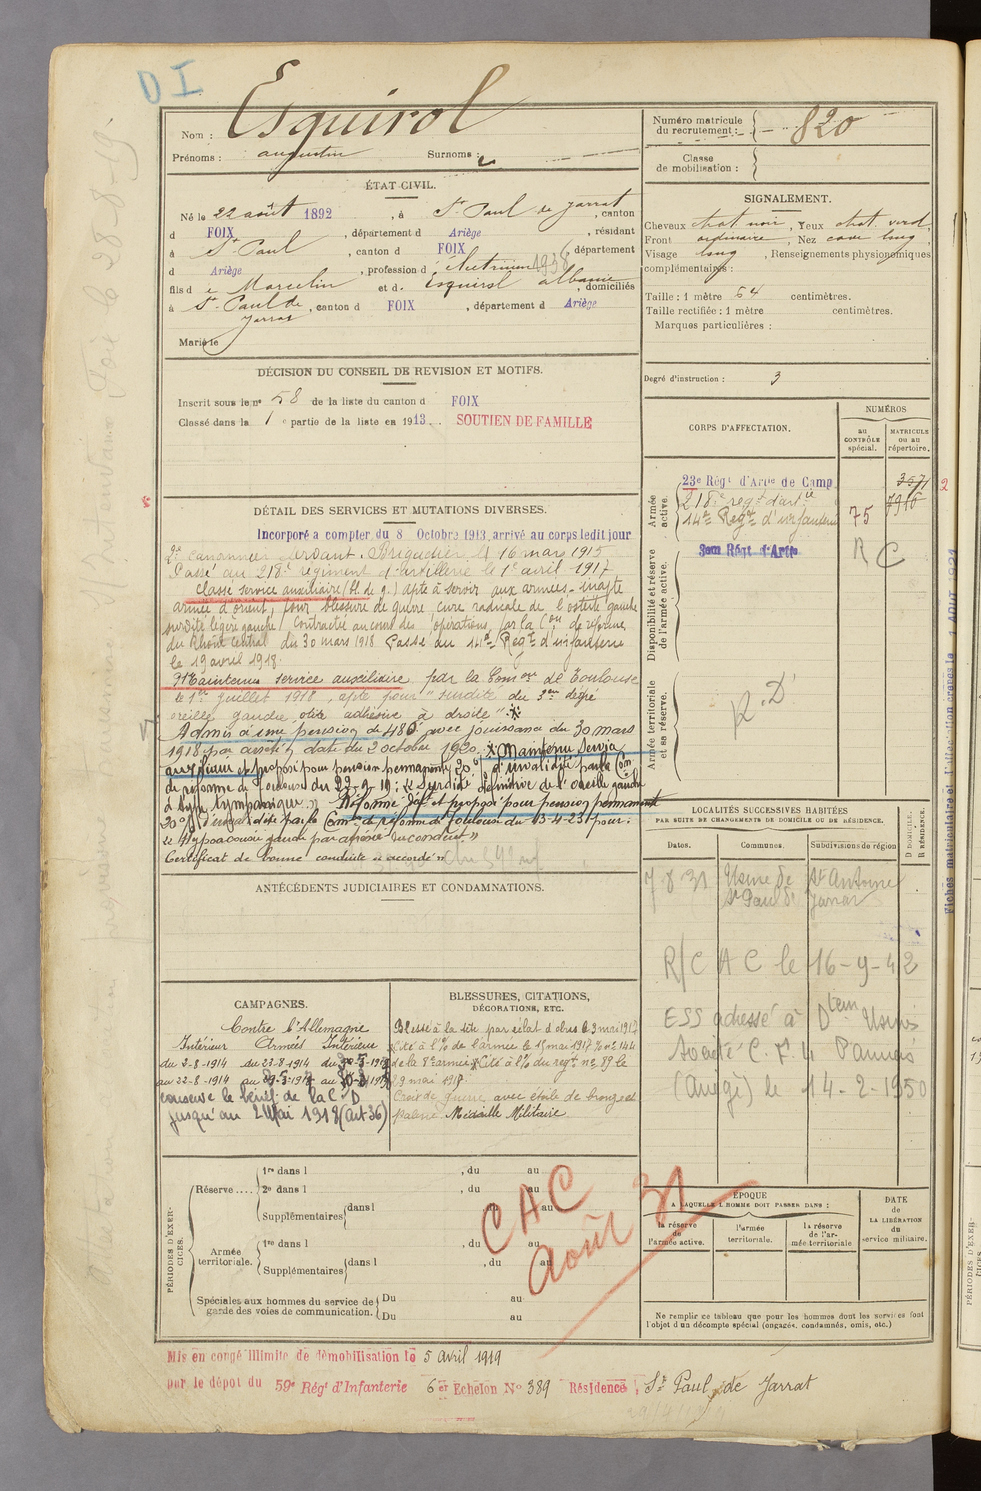 D I
Nom : Esquirol
Prénoms : augustin Surnoms :
Numéro matricule du recrutement : 820
Classe de mobilisation :
ÉTAT CIVIL.
Né le 22 août 1892, à St Paul de Jarrat, canton
d FOIX, département d Ariège, résidant
à St Paul, canton d FOIX, département
d Ariège, profession d
fils d e Marcelin et d. Esquirol albanie, domiciliés
à St Paul de Jarrat, canton d FOIX, département d Ariège
Marié le
SIGNALEMENT.
Cheveux chat noir, Yeux chat. verd.
Front ordinaire, Nez cave long,
Visage long, Renseignements physionomiques
complémentaires :
Taille : 1 mètre 54 centimètres.
Taille rectifiée : 1 mètre centimètres.
Marques particulières :
Degré d'instruction : 3
DÉCISION DU CONSEIL DE REVISION ET MOTIFS.
Inscrit sous le n° 58 de la liste du canton d FOIX
Classé dans la 1 e partie de la liste en 1913. SOUTIEN DE FAMILLE
CORPS D'AFFECTATION.
NUMÉROS
au CONTRÔLE spécial.
MATRICULE ou au répertoire.
Armée active.
23e Régt d'Artie de Camp.
218e regt d'artie
14e Regt d'infanterie
75
2
Disponibilité et réserve de l'armée active.
3em Régt d'Artie
R C
Armée territoriale et sa réserve.
R.D.
DÉTAIL DES SERVICES ET MUTATIONS DIVERSES.
Incorporé a compter du 8 Octobre 1913, arrivé au corps ledit jour
2e canonnier servant. Brigadier le 16 mars 1915
Passé au 218e régiment d'artillerie le 1er avril 1917
Classé service auxiliaire (bl. de g.) apte à servir aux armées - inapte
armée d'orient, pour blessure de guerre, cure radicale de l'ostéite gauche
surdité légère gauche, contractée au cours des opérations, par la Con de réforme
du Rhône Central du 30 mars 1918 Passé au 14e Regt d'infanterie
le 19 avril 1918.
Maintenu service auxiliaire par la Comon de Toulouse
le 1er Juillet 1918, apte pour "surdité du 3em degré
oreille gauche, otite adhésive à droite".
Admis à une pension de 480f avec jouissance du 30 mars
1918 par arrêté, date du 2 octobre 1920. Maintenu service
auxiliaire et proposé pour pension permanente 20% d'invalidité par la Con
de réforme de Toulouse du 22-9-19 : "Surdité définitive de l'oreille gauche
à type tympanique." Réformé déf. et proposé pour pension permanente
20% d'invalidité par la Comon de réforme de Toulouse du 13-4-23 pour :
Certificat de bonne conduite "accordé"
LOCALITÉS SUCCESSIVES HABITÉES
PAR SUITE DE CHANGEMENTS DE DOMICILE OU DE RÉSIDENCE.
Dates. Communes. Subdivisions de région D DOMICILE. R RÉSIDENCE.
7 8 31 Usine de St Antoine
St Paul de Jarrat
R/C A C le 16-9-42
ESS adressé à
Société C. F. 4 Pamiers
(Ariège) le 14-2-1950
ANTÉCÉDENTS JUDICIAIRES ET CONDAMNATIONS.
CAMPAGNES.
Contre l'Allemagne
Intérieur Armées Intérieur
du 2-8-1914 du 23-8-1914
au 22-8-1914
conserve le bénéf. de la C. D
jusqu'au 24 Mai 1918 (art 36)
BLESSURES, CITATIONS,
DÉCORATIONS, ETC.
Blessé à la tête par éclat d'obus le 3 mai 1917
Cité à l'% de l'armée le 15 mai 1917 % n° 144
de la 5e armée Cité à l'% du regt n° 89 le
29 mai 1918
Croix de guerre avec étoile de bronze et
palme Médaille Militaire
PÉRIODES D'EXERCICES.
Réserve....
1re dans l , du au
2e dans l , du au
Supplémentaires dans l du au
Armée territoriale.
1re dans l , du au
Supplémentaires dans l , du au
Spéciales aux hommes du service de garde des voies de communication.
Du au
Du au
CAC
Août 31
ÉPOQUE
A LAQUELLE L'HOMME DOIT PASSER DANS :
la réserve de l'armée active.
l'armée territoriale.
la réserve de l'armée territoriale
DATE de LA LIBÉRATION du service militaire.
Ne remplir ce tableau que pour les hommes dont les services font
l'objet d'un décompte spécial (engagés, condamnés, omis, etc.)
Mis en congé illimité de démobilisation le 5 avril 1919
par le dépôt du 59e Régt d'Infanterie 6 er Echelon N° 389 Résidence : St Paul de Jarrat
Fiches matriculaire et d'affectation créées le 1 AOUT 1931